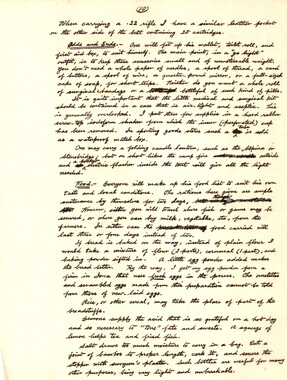 (10)
When carrying a .22 rifle I have a similar leather pocket
on the other side of the belt containing 25 cartridges.
Odds and Ends:- One will fit up his wallet, toilet roll, and
first aid box, to suit himself. The main point, in a "go light"
outfit, is to keep these accessories small and of unnoticeable weight.
You don't need a whole paper of needles, a spool of thread, a card
of buttons, a spool of wire, a quarter-pound mirror, or a full-sized
cake of soap, for short trips. Neither do you want a whole roll
of surgical bandage or a bottleful of each kind of pills.
It is quite important that the little medical and surgical kit
should be contained in a case that is air-tight and aseptic. This
is generally overlooked. I put
top iodoform shaker from which the inner (
has been removed. In sporting goods stores such a is sold
as a waterproof match box.
One may carry a folding candle lantern, such as the Alpina or
Stonebridge; but on short hikes the camp fire outside
and electric flasher inside the tent will give all the light
needed.
Food:- Everyone will make up his food list to suit his own
taste and local conditions. The rations here given are ample
sustenance by themselves for two days,
However, often you will travel where fish or game may be
secured, or where you can buy milk, vegetables, etc., from the
farmers. In either case the food carried will
last three or four days instead of two.
If bread is baked on the way, instead of plain flour I
would take a mixture of flour (3 parts), cornmeal (1 part), and
baking powder sifted in. A little egg powder added makes
the bread better. By the way, I get my egg powder from a
firm in Iowa that uses fresh eggs in the process. The omelettes
and scrambled eggs made from this preparation cannot be told
from those of new-laid eggs.
Rice, or other cereal, may take the place of part of the
breadstuffs.
Lemons supply the acid that is so grateful on a hot day
and so necessary to "tone" fats and sweets. A squeeze of
lemon helps tea and fried fish.
Salt draws too much moisture to carry in a bag. Cut a
joint of bamboo to proper length, cork it, and secure the
stopper with surgeon's plaster. Such bottles are useful for many
other purposes, being very light and unbreakable.